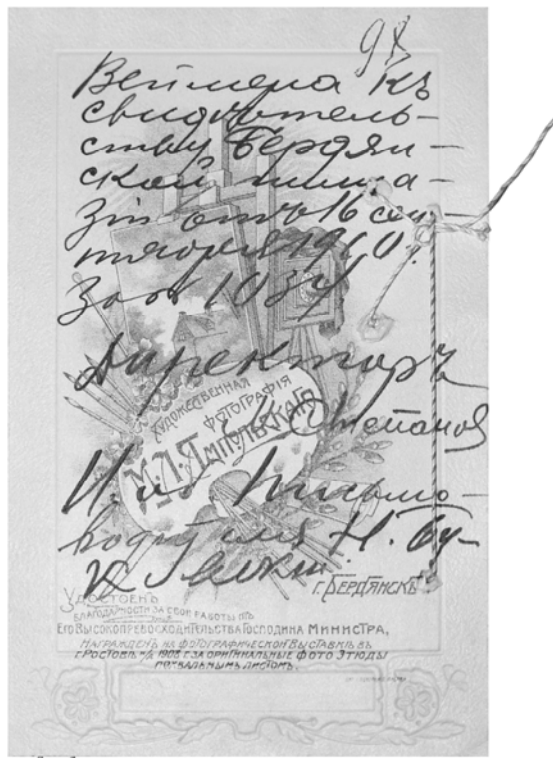 98
Веймера къ
свидѣтель-
ству Бердян-
ской гимна-
зіи отъ 16 сен-
тября 1910 г.
за № 1034
Директоръ
Степановъ
И. об. письмо-
водителя Н.
ХУДОЖЕСТВЕННАЯ
ФОТОГРАФІЯ
М.Л. ЯМПОЛЬСКАГО
Г. БЕРДЯНСКЪ
УДОСТОЕНЪ
БЛАГОДАРНОСТИ ЗА СВОИ РАБОТЫ ОТЪ
ЕГО ВЫСОКОПРЕВОСХОДИТЕЛЬСТВА ГОСПОДИНА МИНИСТРА,
НАГРАЖДЕНЪ НА ФОТОГРАФИЧЕСКОЙ ВЫСТАВКѢ ВЪ
Г. РОСТОВѢ Н/Д 1908 Г. ЗА ОРИГИНАЛЬНЫЕ ФОТО ЭТЮДЫ
ПОХВАЛЬНЫМЪ ЛИСТОМЪ.